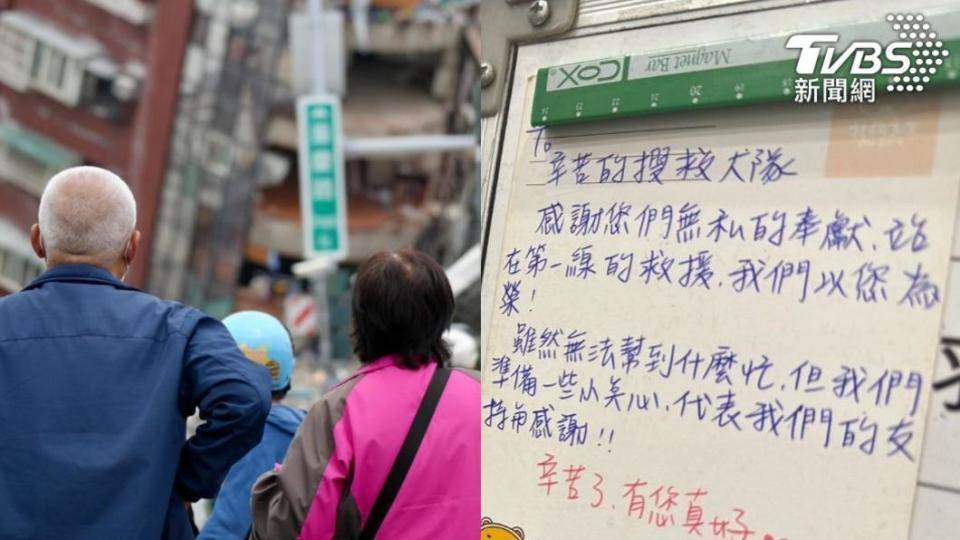 TVBS
新聞網
COX Magnet Bar
To
辛苦的搜救犬隊
感謝您們無私的奉獻.站
在第一線的救援.我們以您為
榮!
雖然無法幫到什麼忙.但我們
準備一些小点心.代表我們的支
持与感謝!!
辛苦了.有您真好。